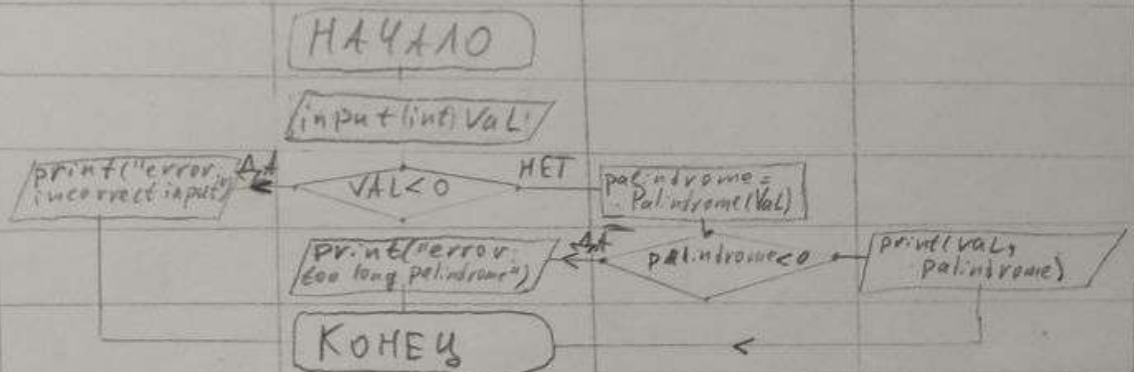 НАЧАЛО
input (int) VaL
print("error,
incorrect input")
ДА
VAL<0
НЕТ
palindrome =
Palindrome(VaL)
print("error
too long palindrome")
ДА
palindrome<0
print(VaL,
palindrome)
КОНЕЦ